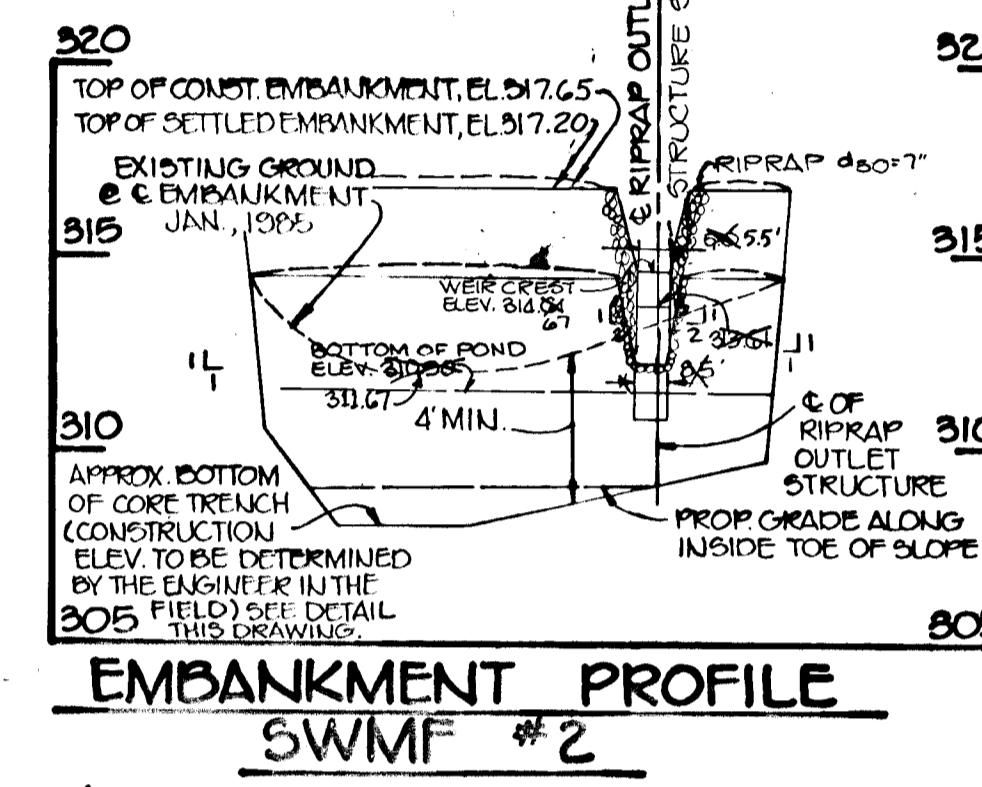 320
32
TOP OF CONST. EMBANKMENT, EL.317.65
TOP OF SETTLED EMBANKMENT, EL.317.20
℄ RIPRAP OUTL
STRUCTURE S
EXISTING GROUND
@ ℄ EMBANKMENT
JAN., 1985
RIPRAP d50=7"
315
315
5.5'
WEIR CREST
ELEV. 314.
67
1
2
1
2
313.61
BOTTOM OF POND
ELEV.
311.67
1
1
1
1
5'
4' MIN.
310
310
℄ OF
RIPRAP
OUTLET
STRUCTURE
APPROX. BOTTOM
OF CORE TRENCH
(CONSTRUCTION
ELEV. TO BE DETERMINED
BY THE ENGINEER IN THE
FIELD) SEE DETAIL
THIS DRAWING.
PROP. GRADE ALONG
INSIDE TOE OF SLOPE
305
305
EMBANKMENT PROFILE
SWMF #2